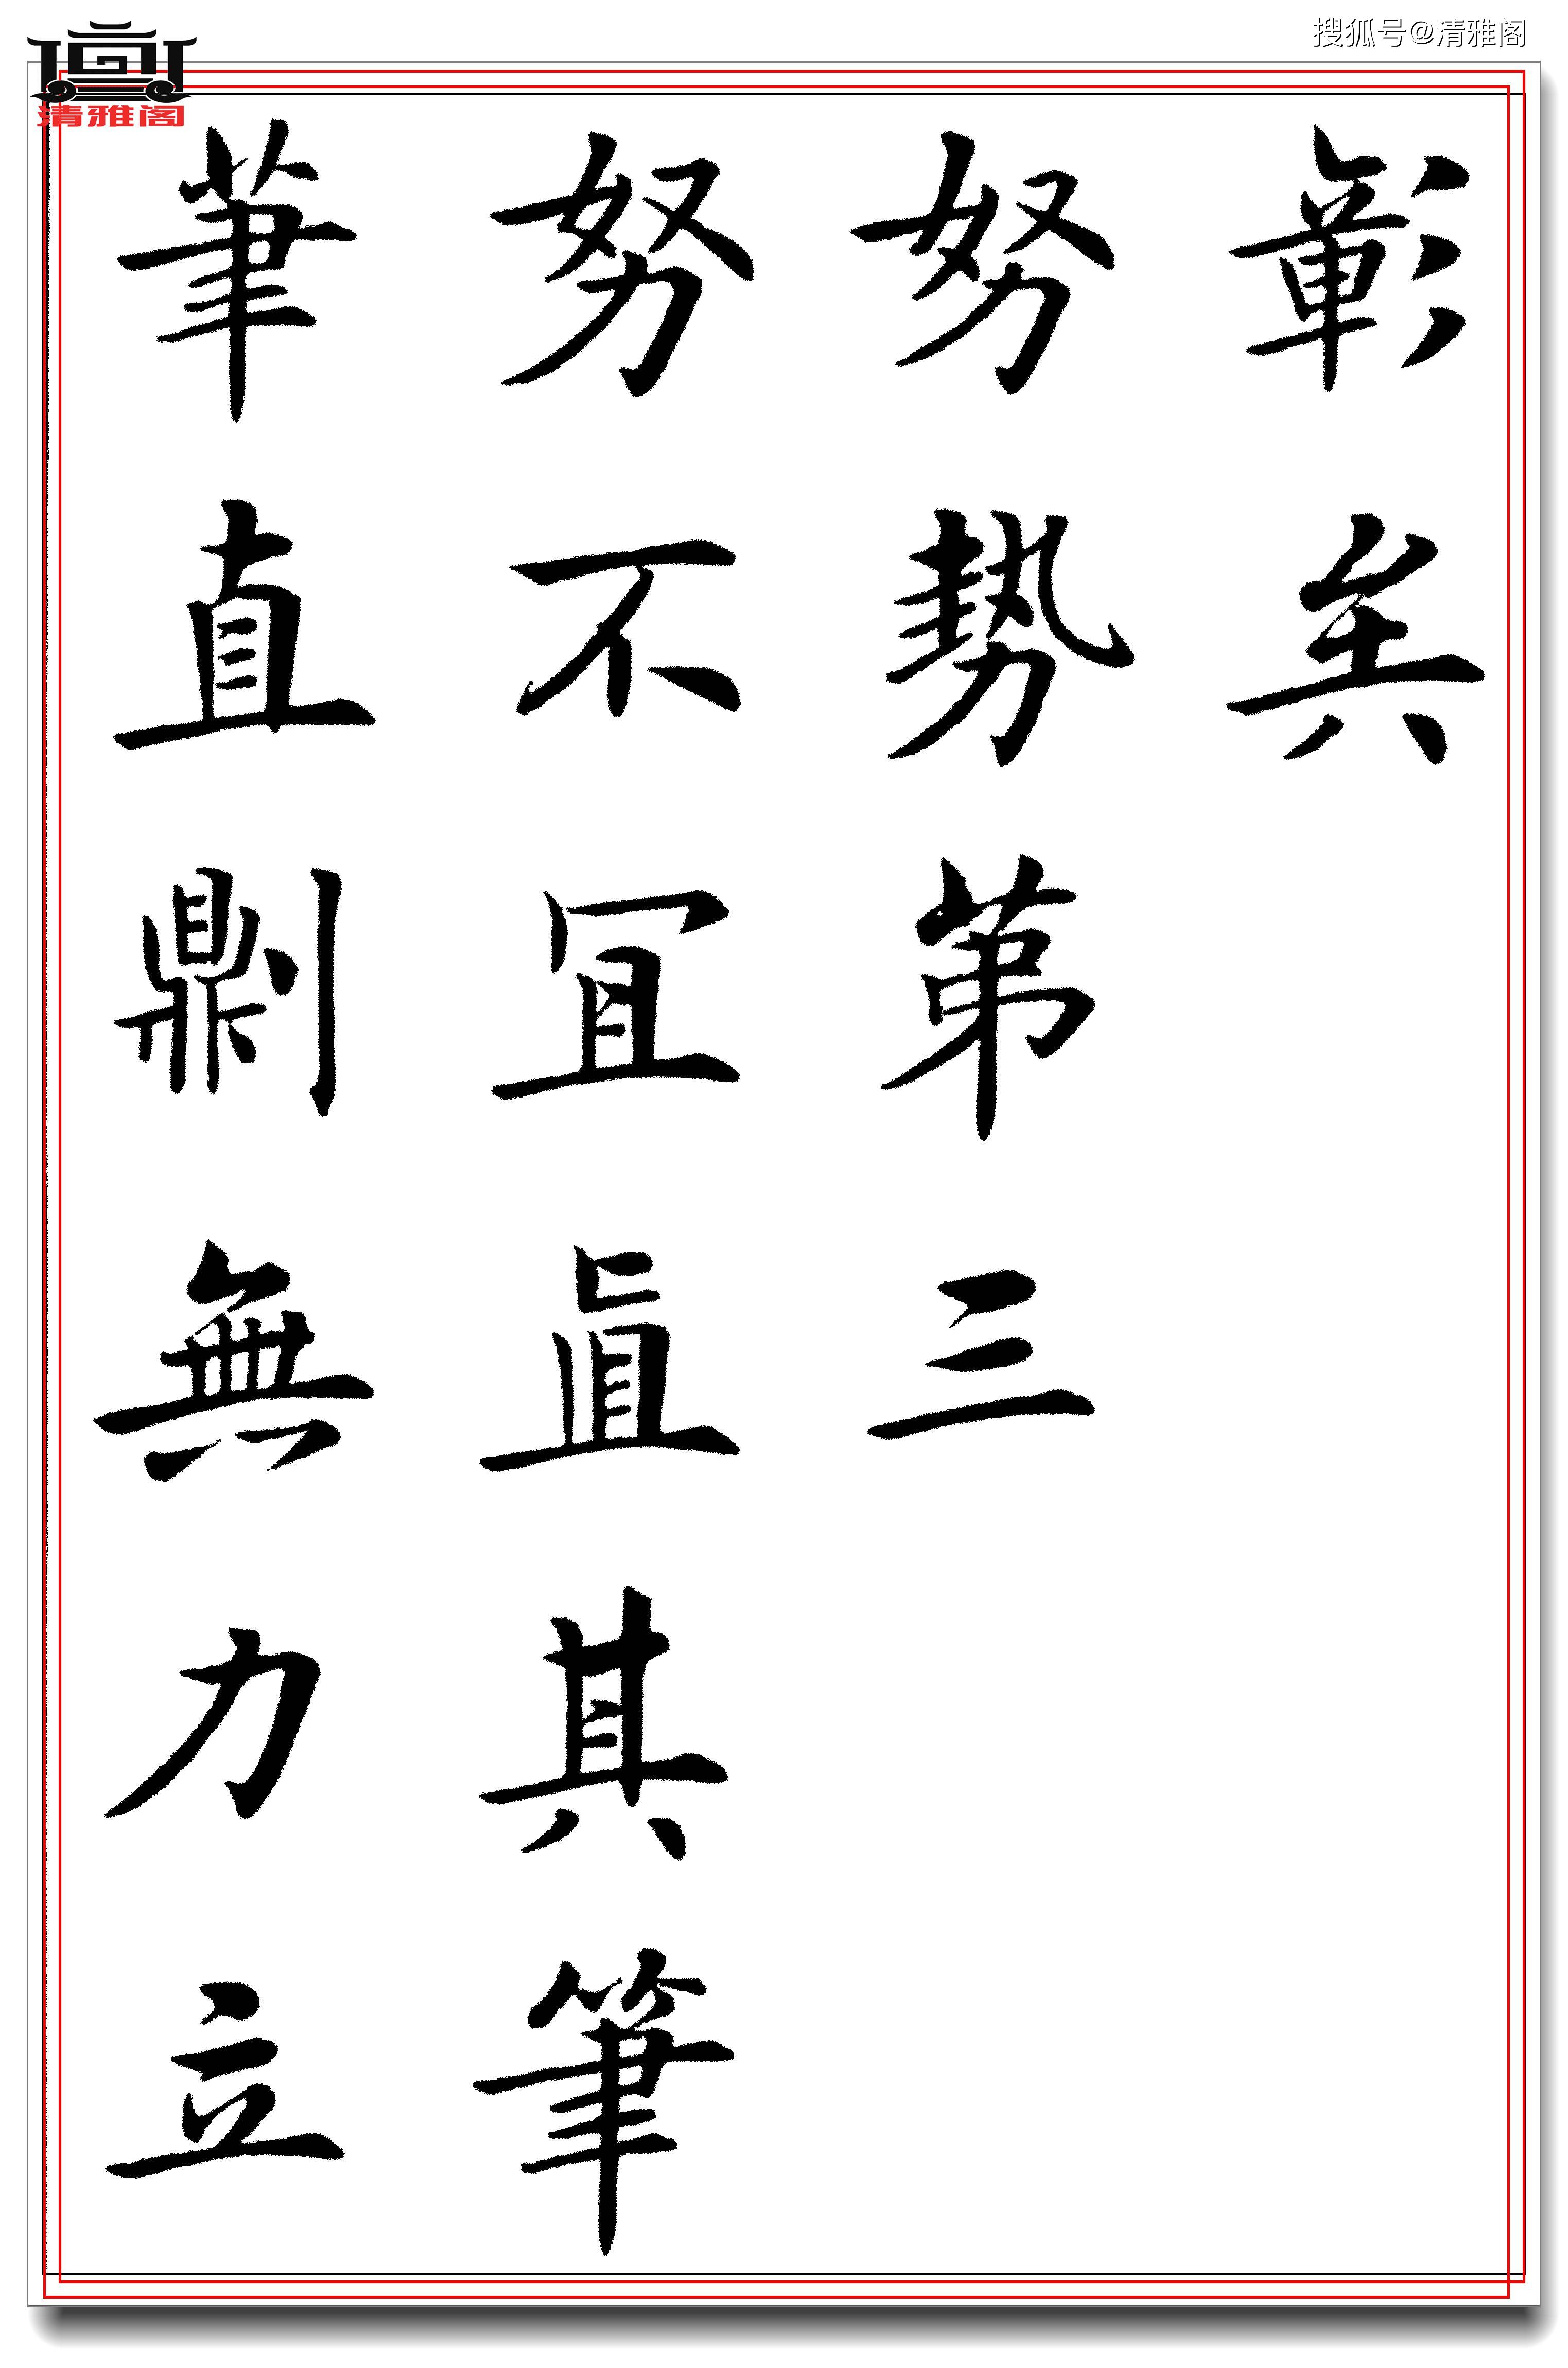 搜狐号@清雅阁
清雅阁
彰矣
努勢第三
努不宜直其筆
筆直則無力立